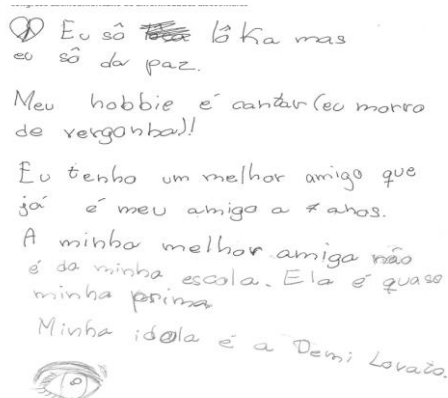 Eu sô lôka mas
eu sô da paz.
Meu hobbie é cantar (eu morro
de vergonha)!
Eu tenho um melhor amigo que
já é meu amigo a anos.
A minha melhor amiga não
é da minha escola. Ela é quase
minha prima
Minha idola é a Demi Lovato.